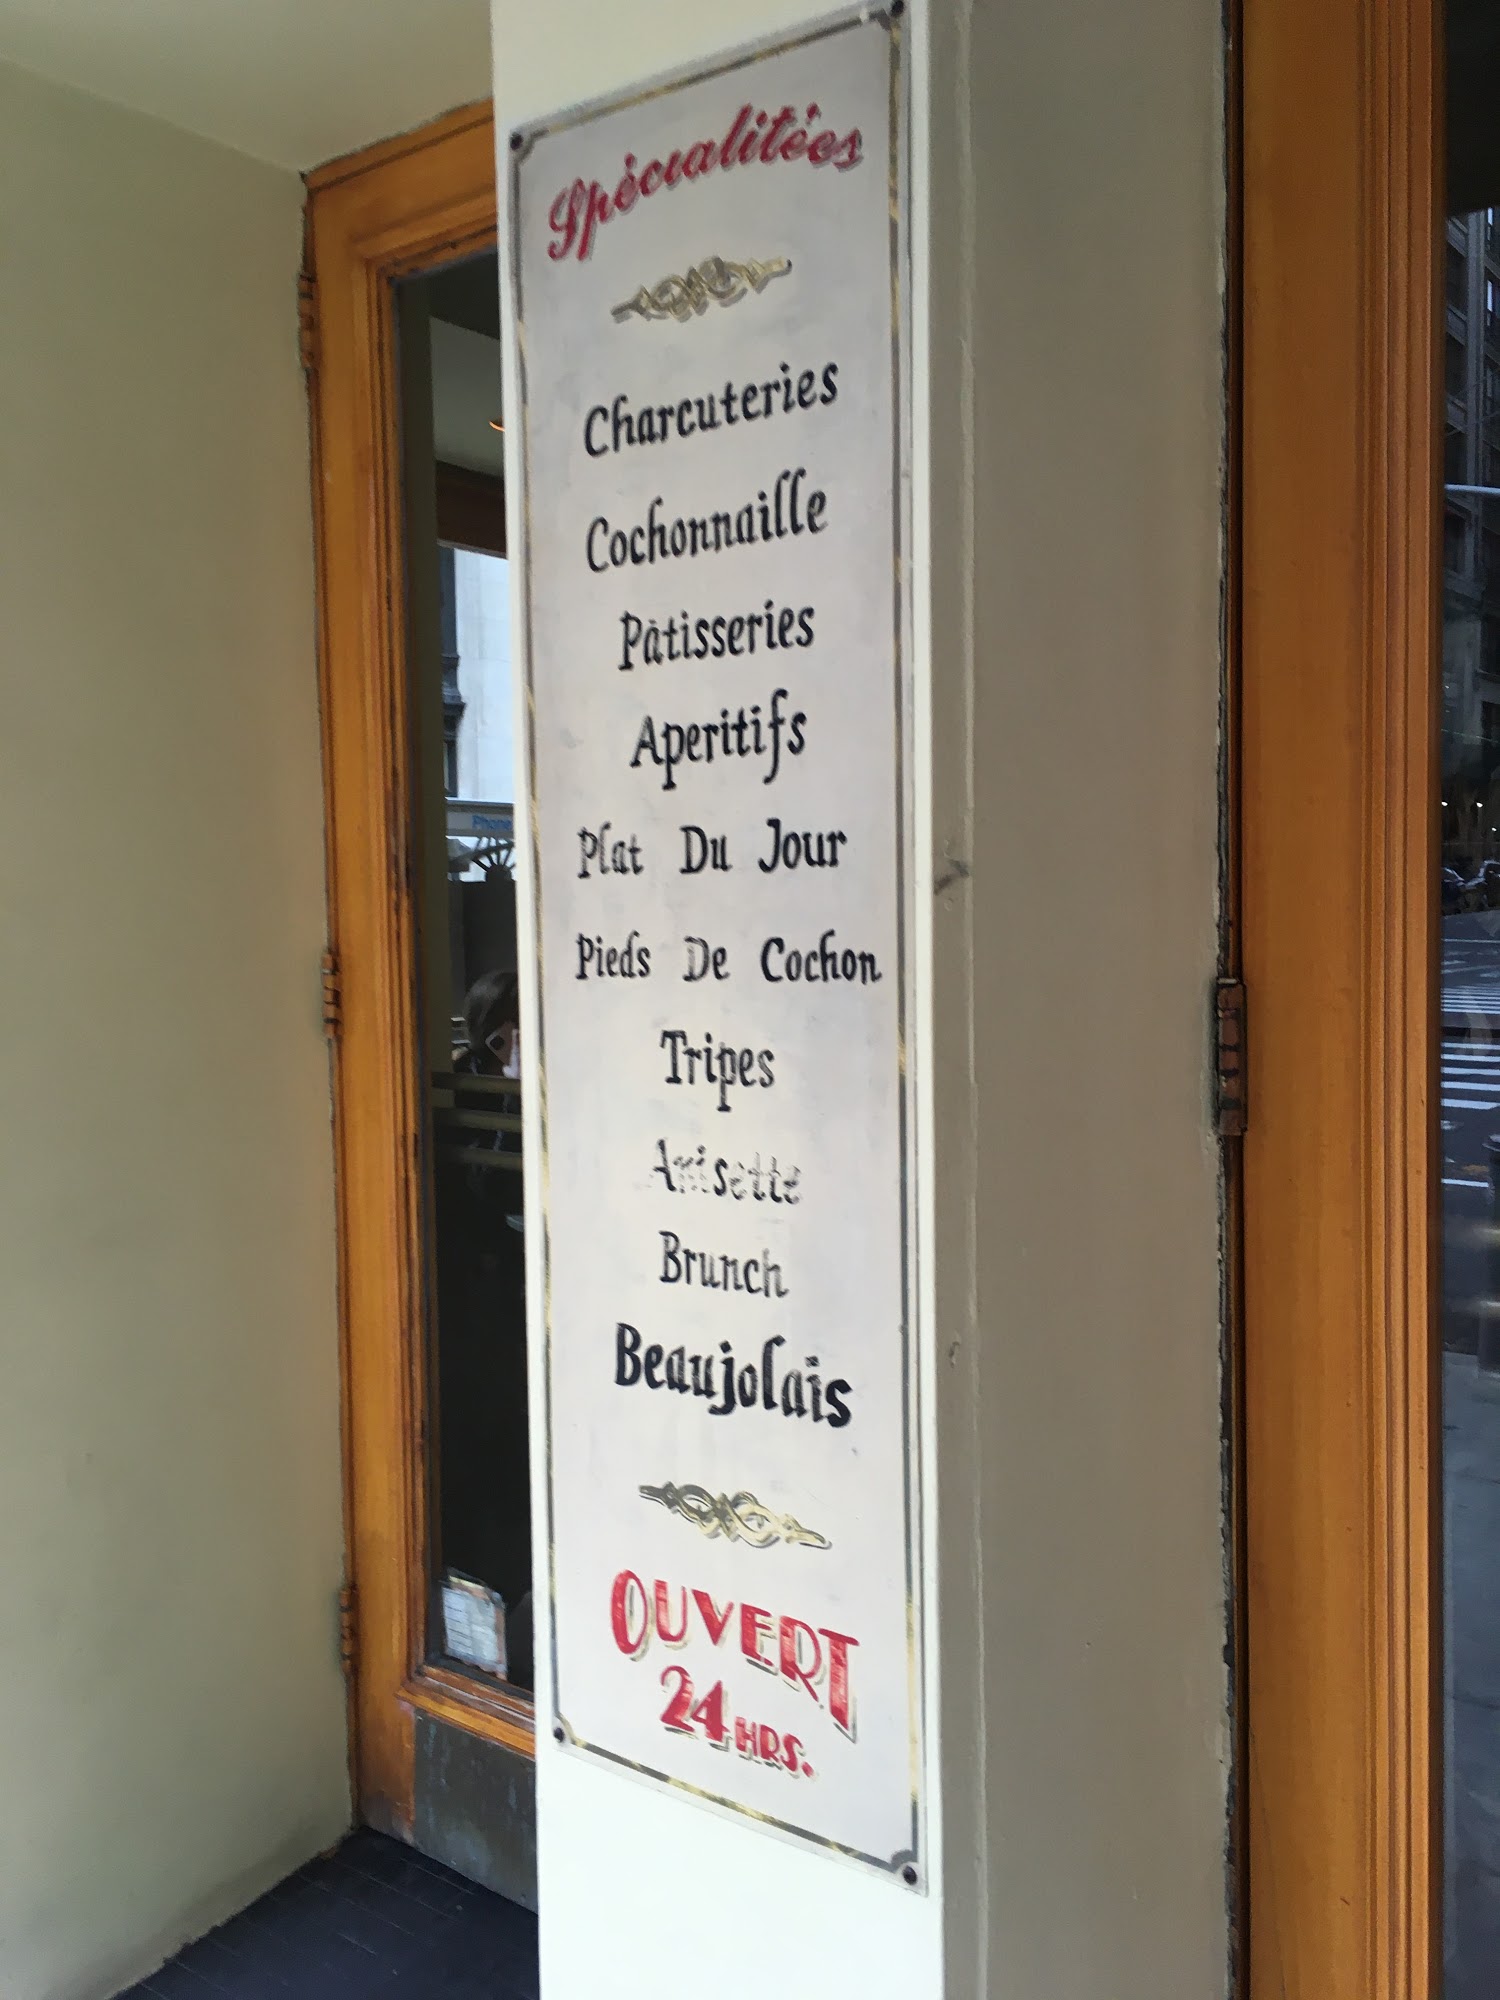 Spécialitées
Charcuteries
Cochonnaille
Pâtisseries
Aperitifs
Plat Du Jour
Pieds De Cochon
Tripes
Anisette
Brunch
Beaujolais
OUVERT
24 HRS.
Phone